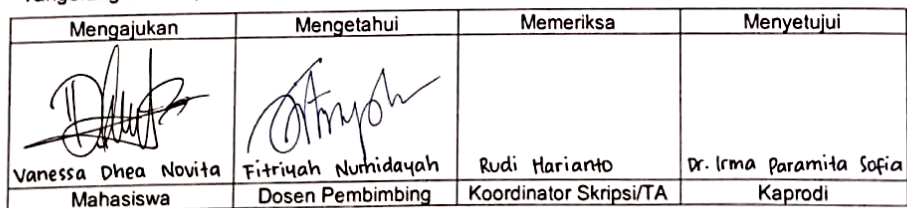 Mengajukan Mengetahui Memeriksa Menyetujui
Vanessa Dhea Novita Fitriyah Nurhidayah Rudi Harianto Dr. Irma Paramita Sofia
Mahasiswa Dosen Pembimbing Koordinator Skripsi/TA Kaprodi